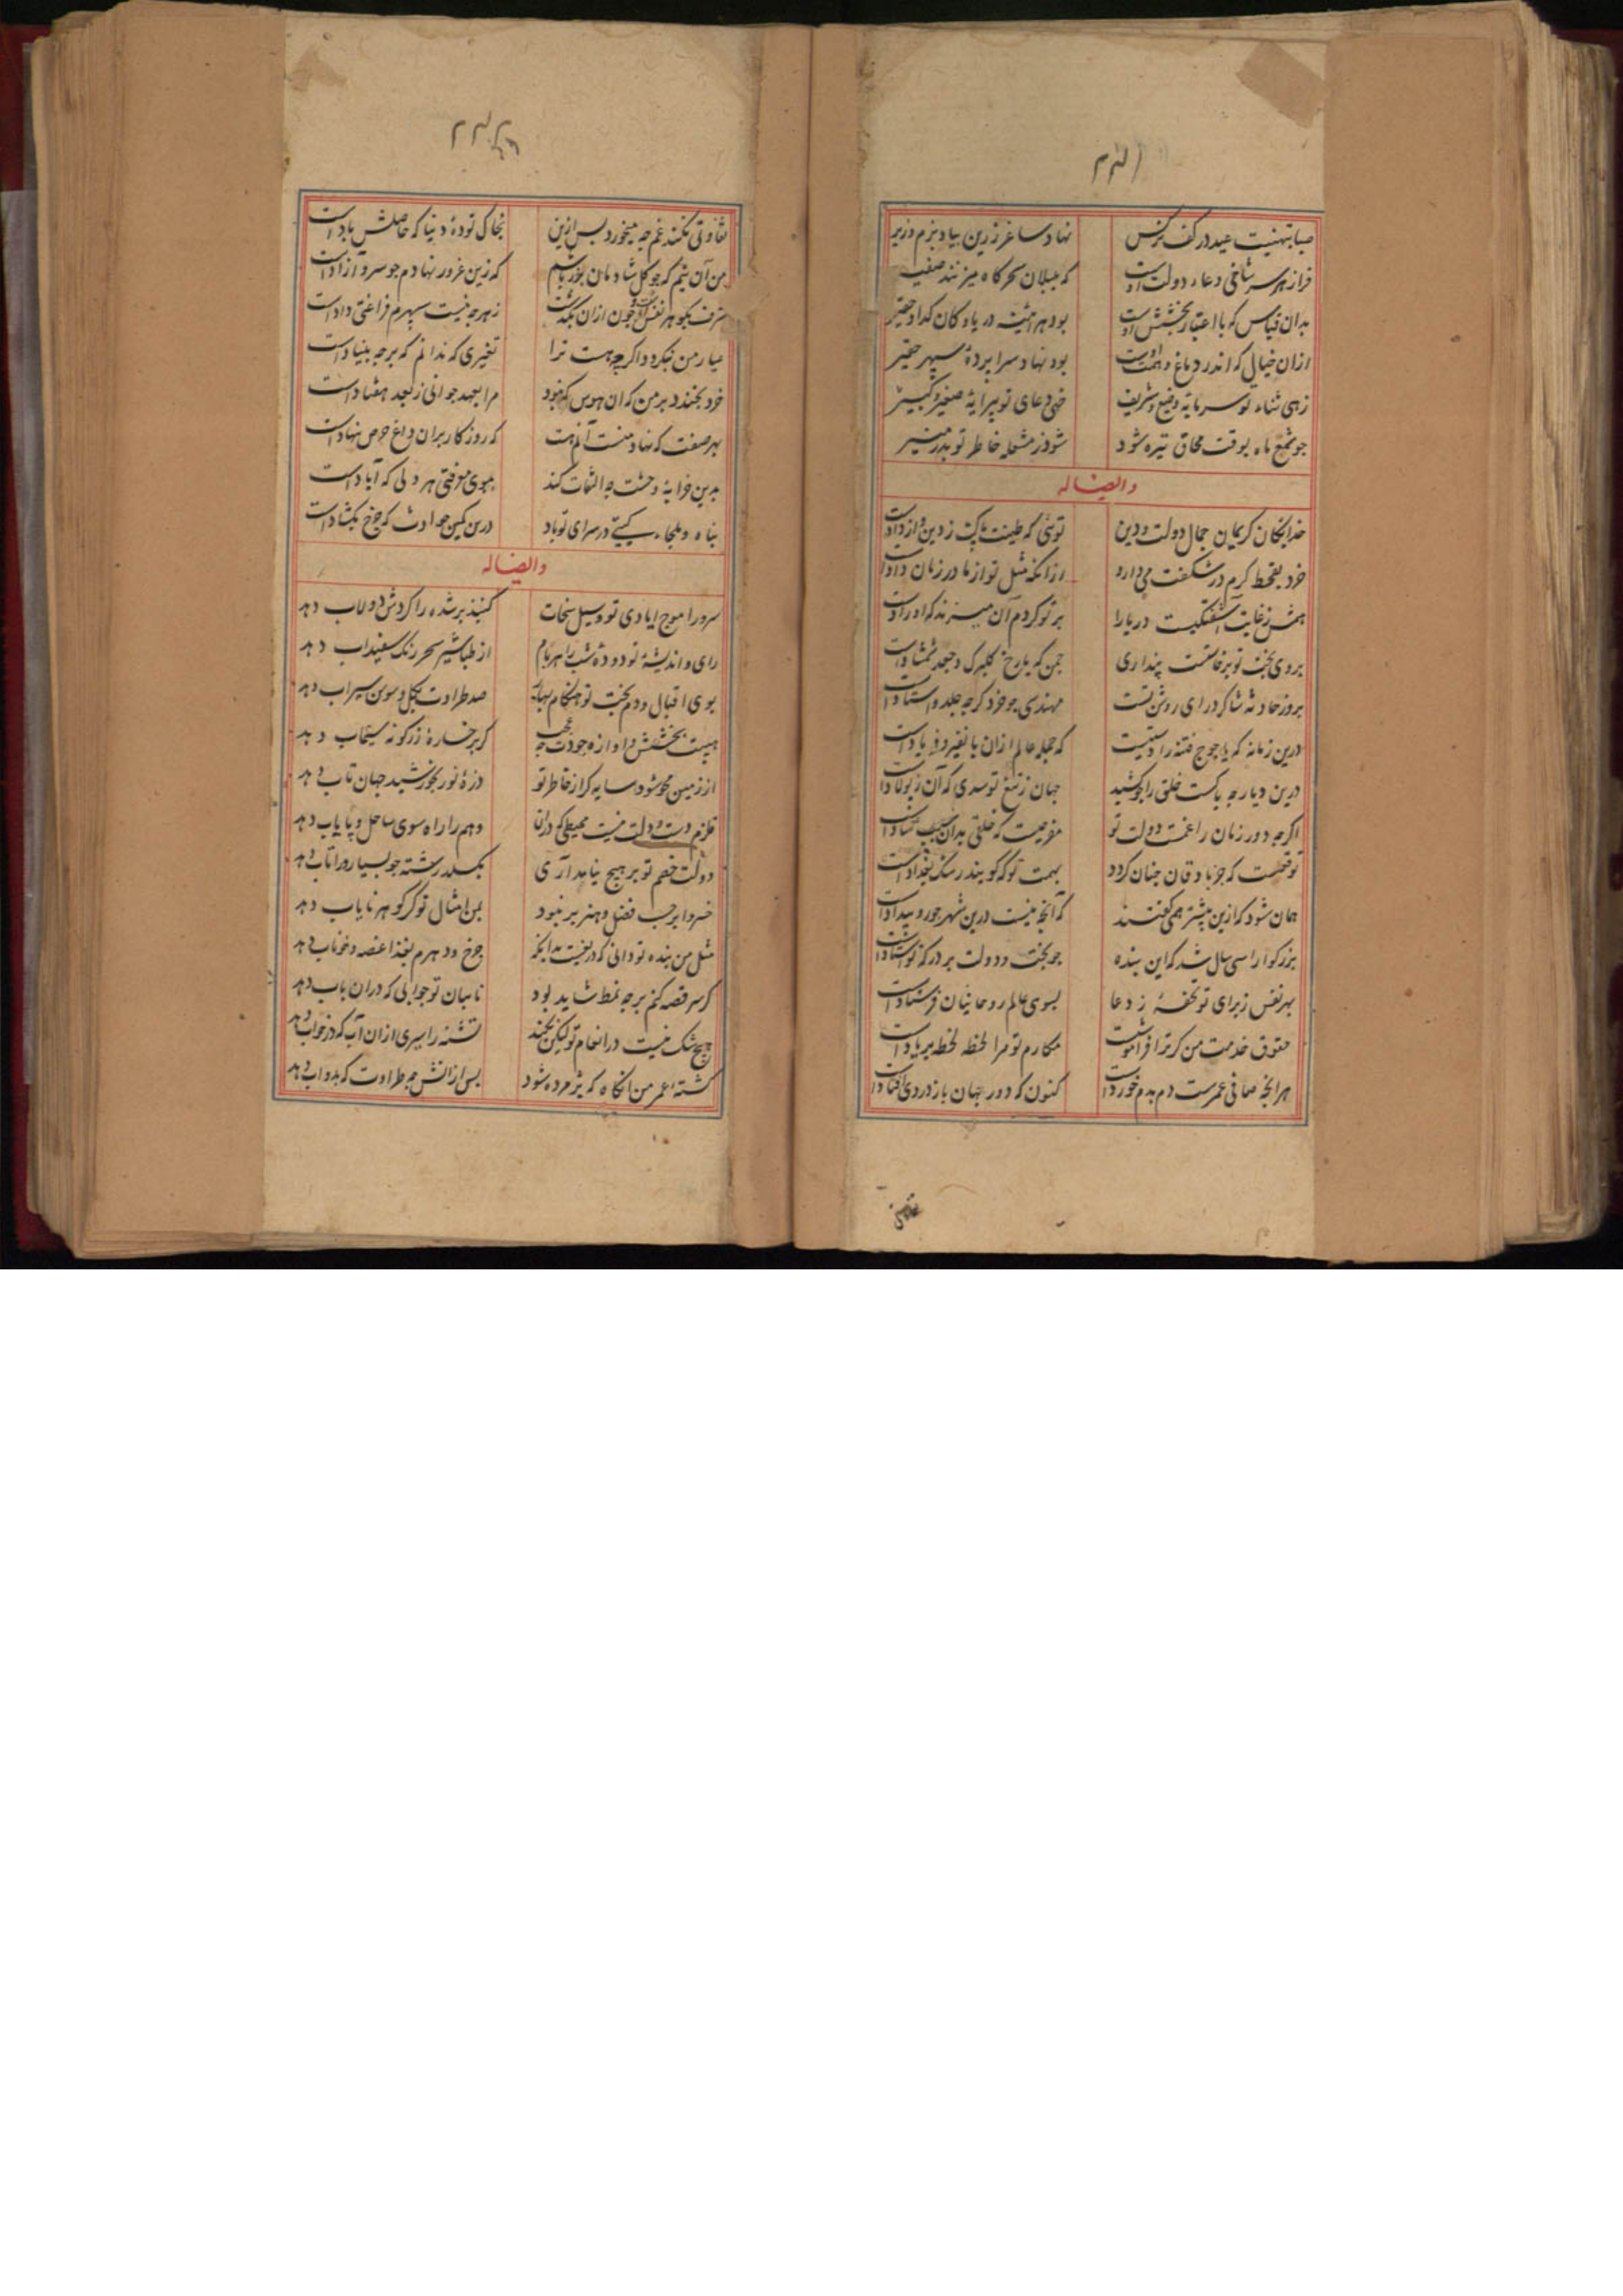 صبا بتهنیت عید در کف نرکس نهاد ساغر زرین بیاد بزم وزیر
فراز هر سر شاخی دعاء دولت اوست که بلبلان سحرکاه میزنند صفیر
بدان قیاس که با اعتبار بخشش اوست بود هرآینه دریا و کان کدا و حقیر
ازان خیال که اندر دماغ و همت اوست بود نهاد سرا پردهٔ سپهر حقیر
زهی ثناء تو سرمایهٔ وضیع و شریف خهی دعای تو پیرایهٔ صغیر و کبیر
جو شمع ماه بوقت محاق تیره شود شود ز مشعلهٔ خاطر تو بدر منیر
وایضا له
خدایکان کریمان جمال دولت و دین توئی که طینت پاکت ز دین و از دادست
خرد بقحط کرم در شکفت می دارد ازانکه مثل تو از مادر زمان زادست
همش ز غایت آشفتکیست دریا را بر تو کردم آن میزند که او رادست
بروی بخت تو برخاست پنداری جمن که با رخ کلبرک و جعد شمشادست
بروز حادثه شاکرد رای روشن تست مهندسی جو خرد کرجه جلد و استادست
درین زمانه که یاجوج فتنه را دستیست که جمله عالم ازان با نفیر و فریادست
درین دیار جه باکست خلق را جو کشید جهان ز تیغ تو سدی که آن ز پولادست
اکرجه دور زمان را غمت دولت تو مفرحیست که خلقی بدان سبب شادست
توقعست که جرباد قان جنان کردد بهمت تو که کویند رشک بغدادست
همان شود که ازین پیشتر همی کفتند که آنجه نیست درین شهر جور و بیدادست
بزرکوارا سی سال شد که این بنده جو بخت و دولت بر درکه تو استادست
بهر نفس ز برای تو تحفهٔ ز دعا بسوی عالم روحانیان فرستادست
حقوق خدمت من کر ترا فراموشست مکارم تو مرا لحظه لحظه بر یادست
هرانجه صافی عمرست دم بدم خوردست کنون که دور جهان باز دردی افتادست
تفاوتی نکند غم جه میخورد پس ازین بخاک تودهٔ دنیا که حاصلش بادست
من آن نیم که جو کل شادمان بخود باشم که زین غرور نهادم جو سرو آزادست
زهرجه نیست سپهرم فراغتی دادست
عیار من نکردد اکرجه هست ترا تغیری که ندانم که برجه بنیادست
خرد بخندد بر من که ان هوس کم نبود مرا بعهد جوانی نه بعد هفتادست
بهر صفت که نهاد منست آنم هست که روزکار بران داغ حرص ننهادست
بدین خرابهٔ وحشت جه التفات کند بسوی معرفتی هر دلی که آبادست
پناه و ملجاء کیتی در سرای تو باد درین کمین حوادث که جرخ بکشادست
وایضا له
سرورا موج ایادی تو و سیل سخات کنبذ بر شده را کردش دولاب دهد
رای و اندیشهٔ تو دودهٔ شب را هر بام از طباشیر سحر رنک سفیداب دهد
بوی اقبال و دم بخت تو هنکام بهار صد طراوت بکل و سوسن سیراب دهد
هیبت بخشش و اوازه جودت جه عجب کر برخسارهٔ زر کونه سیماب دهد
از زمین محو شود سایه کر از خاطر تو ذرهٔ نور بخورشید جهان تاب دهد
قلزم دست و دلت نیست محیطی که دران وهم را راه سوی ساحل و پایاب دهد
دولت خصم تو بر هیج نیامد آری بکسلد رشته جو بسیار ورا تاب دهد
خسروا بر حسب فضل و هنر بر نبود بمن امثال تو کر کوهر نایاب دهد
مثل من بنده تو دانی که دریغست بدانکه جرخ و دهرم بغذا غصه و خوناب دهد
کر سر قصه کنم برجه نمط شاید بود نامیان تو جوابی که دران باب دهد
هیج شک نیست در انعام تو لیکن نکند تشنه را سیری ازان آب که در خواب دهد
کشتهٔ عمر من انکاه که پژمرده شود پس ازانش جه طراوت که بدو اب دهد